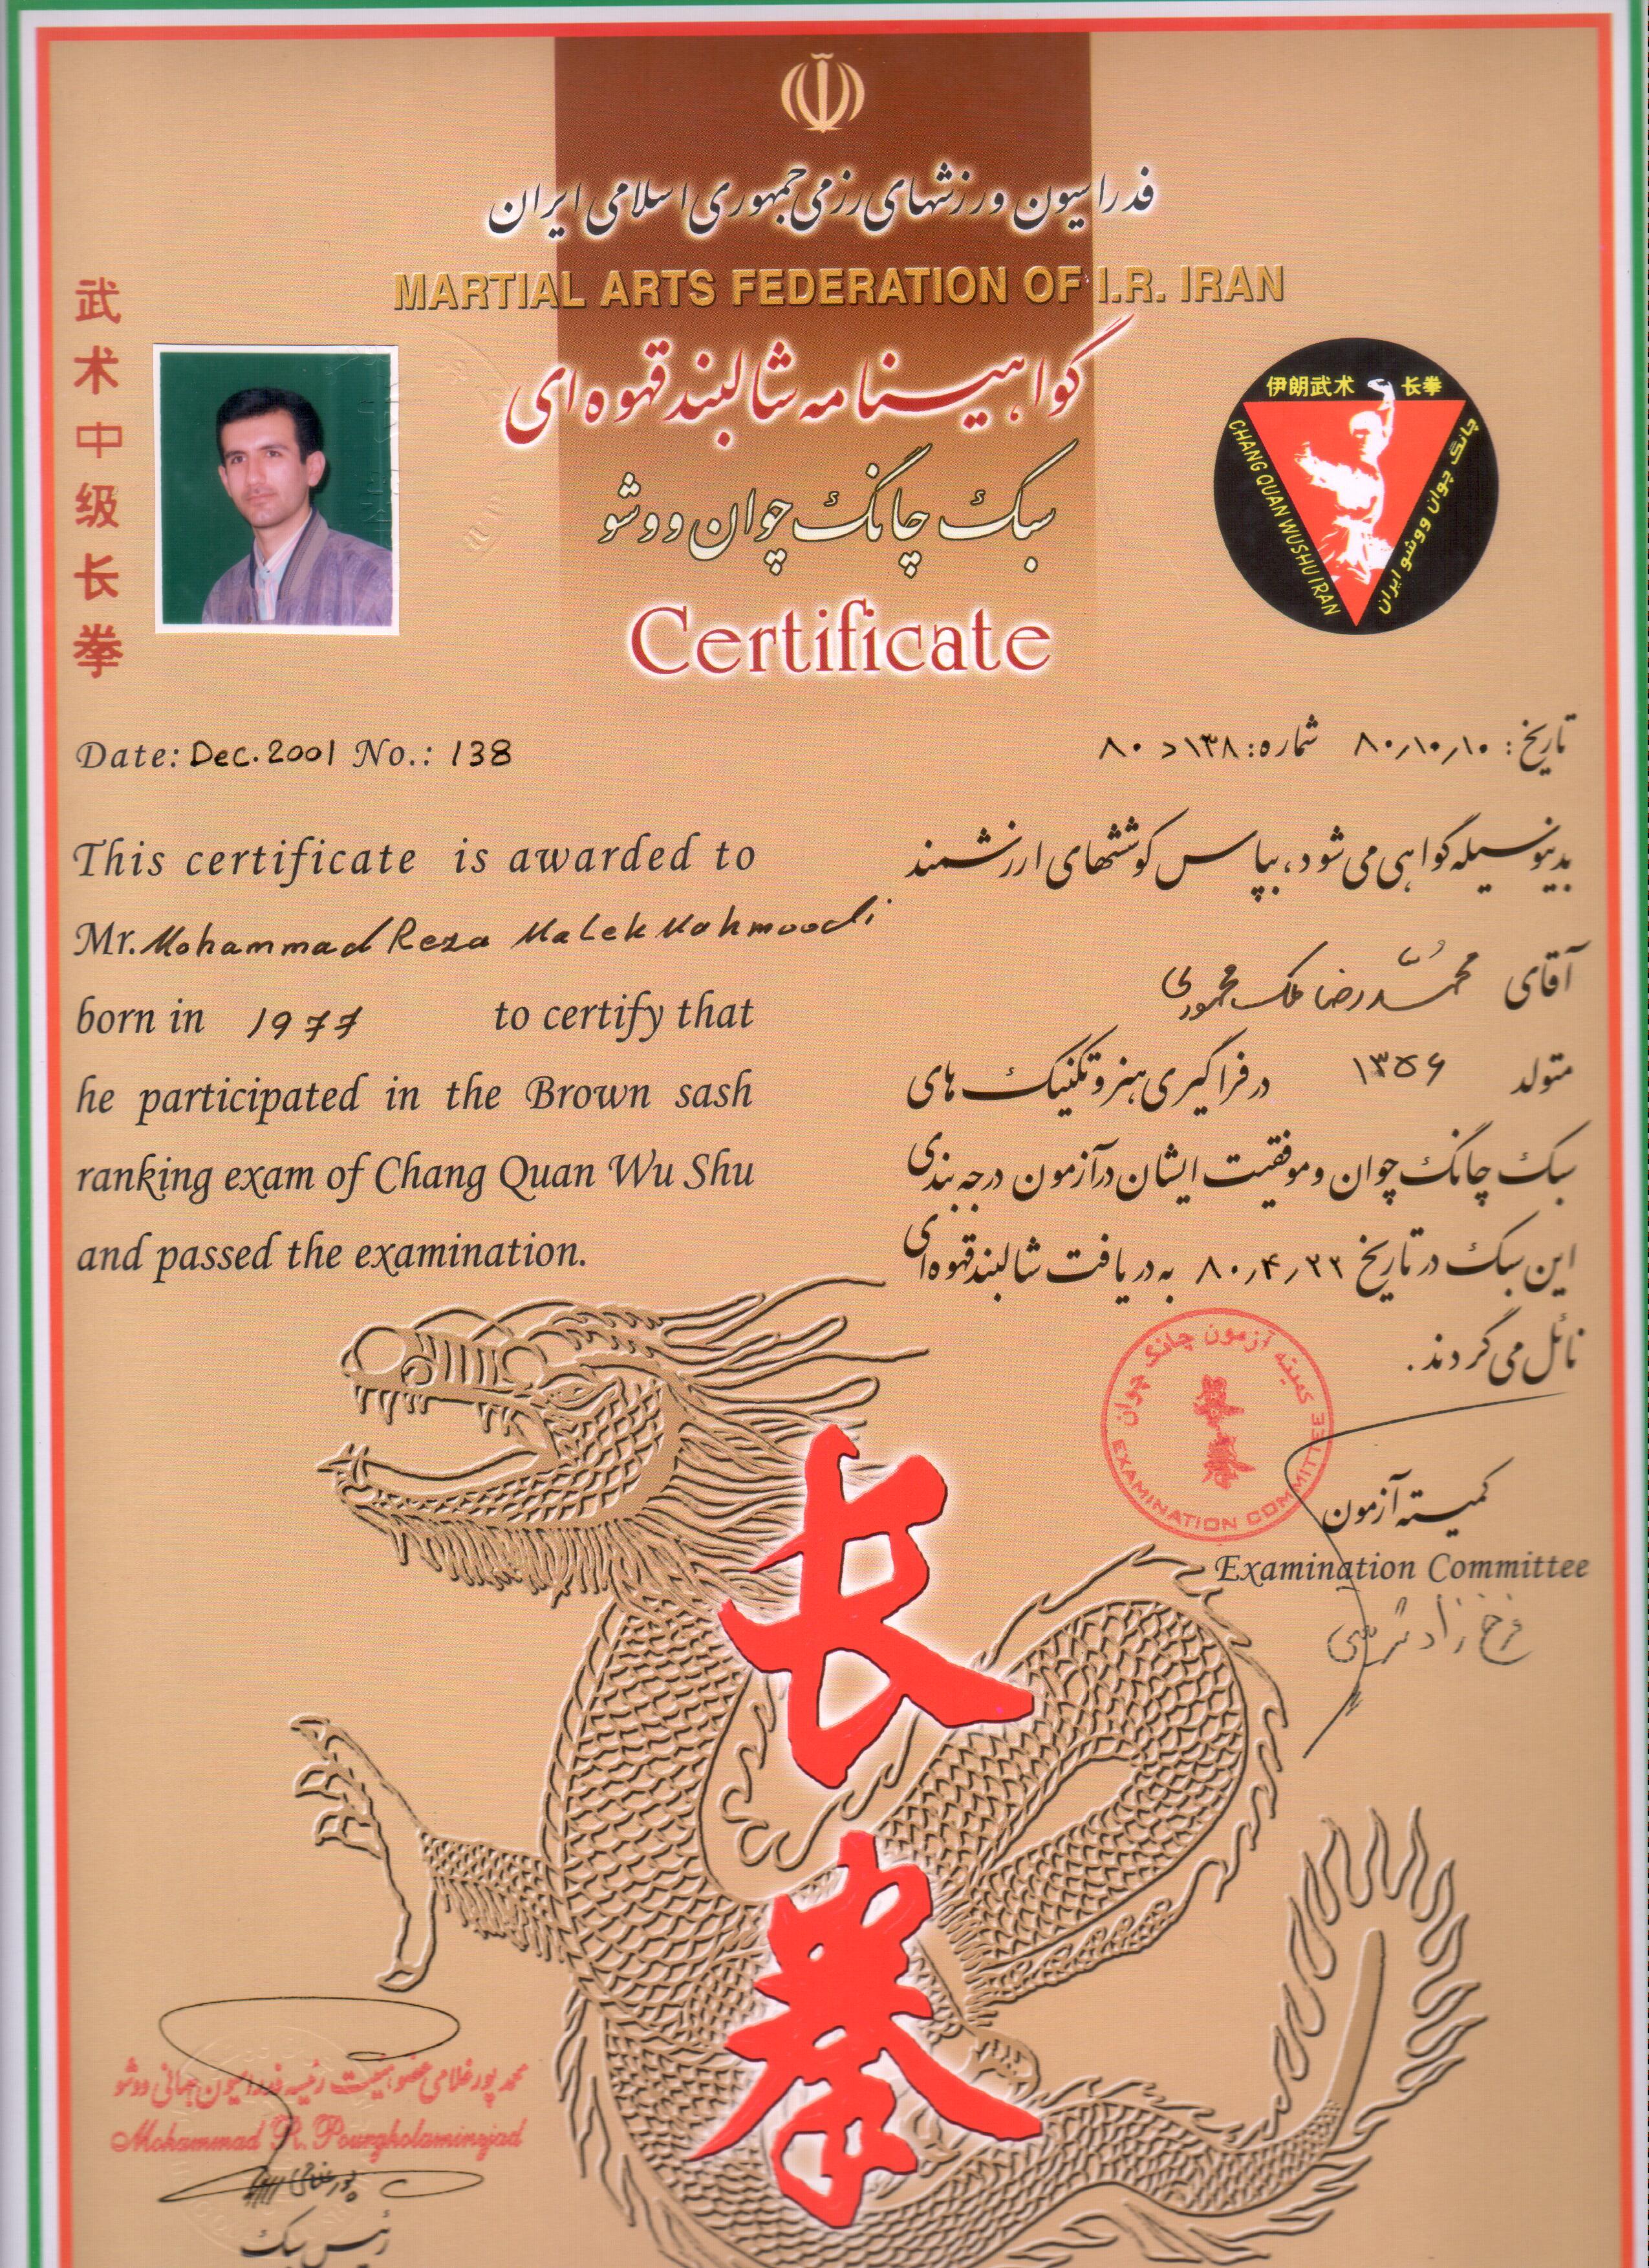 فدراسیون ورزشهای رزمی جمهوری اسلامی ایران
MARTIAL ARTS FEDERATION OF I.R. IRAN
گواهینامه شالبند قهوه‌ای
سبک چانگ چوان ووشو
Certificate
武术中级长拳
伊朗武术 长拳
CHANG QUAN WUSHU IRAN
چانگ چوان ووشو ایران
Date: Dec. 2001 No.: 138
This certificate is awarded to
Mr. Mohammad Reza Malek Mahmoodi
born in 1977 to certify that
he participated in the Brown sash
ranking exam of Chang Quan Wu Shu
and passed the examination.
تاریخ: ۸۰/۱۰/۱۰ شماره: ۱۳۸ د ۸۰
بدینوسیله گواهی می شود، بپاس کوششهای ارزشمند
آقای محمدرضا ملک محمودی
متولد ۱۳۵۶ در فراگیری هنر و تکنیک های
سبک چانگ چوان و موفقیت ایشان در آزمون درجه بندی
این سبک در تاریخ ۸۰/۴/۲۲ به دریافت شالبند قهوه‌ای
نائل می گردند.
کمیته آزمون چانگ چوان
EXAMINATION COMMITTEE
کمیته آزمون
Examination Committee
长拳
محمد پورغلامی عضو هیئت رئیسه فدراسیون جهانی ووشو
Mohammad R. Pourgholaminejad
رئیس سبک